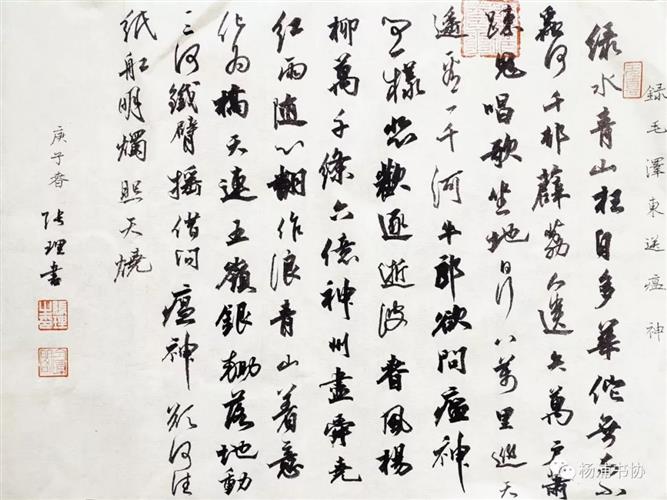 録毛澤東送瘟神
绿水青山枉自多華佗無奈小
蟲何千村薜荔人遺矢萬户蕭
疎鬼唱歌坐地日行八萬里巡天
遥看一千河牛郎欲問瘟神
事一樣悲歡逐逝波春風楊
柳萬千條六億神州盡舜堯
红雨随心翻作浪青山着意
化为橋天連五嶺銀鋤落地動
三河鐵臂摇借问瘟神欲何往
纸船明燭照天燒
庚子春 张理書
杨浦书协